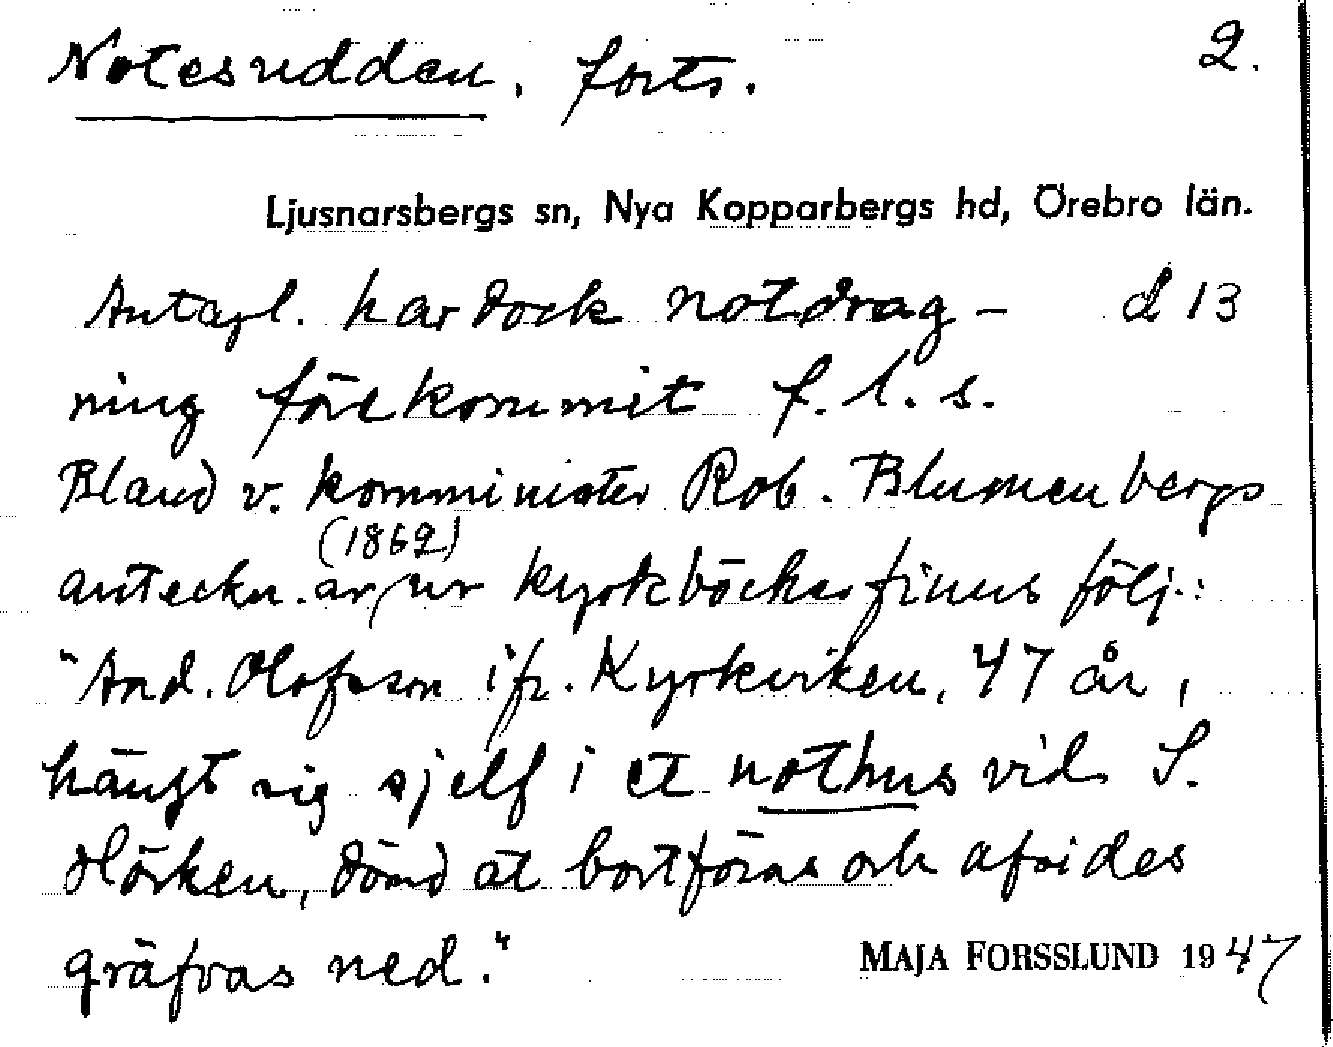 Notesudden, forts. 2.
Ljusnarsbergs sn, Nya Kopparbergs hd, Örebro län.
Antagl. har dock notdrag- d 13
ning förekommit f. l. s.
Bland v. komminister Rob. Blumenbergs
(1862)
anteckn. ar ur kyrkböcker finns följ.:
"And. Olofsson ifr. Kyrkviken, 47 år,
hängt sig sjelf i et nothus vid S.
Hörken, dömd at bortföras och afsides
gräfvas ned."
MAJA FORSSLUND 1947